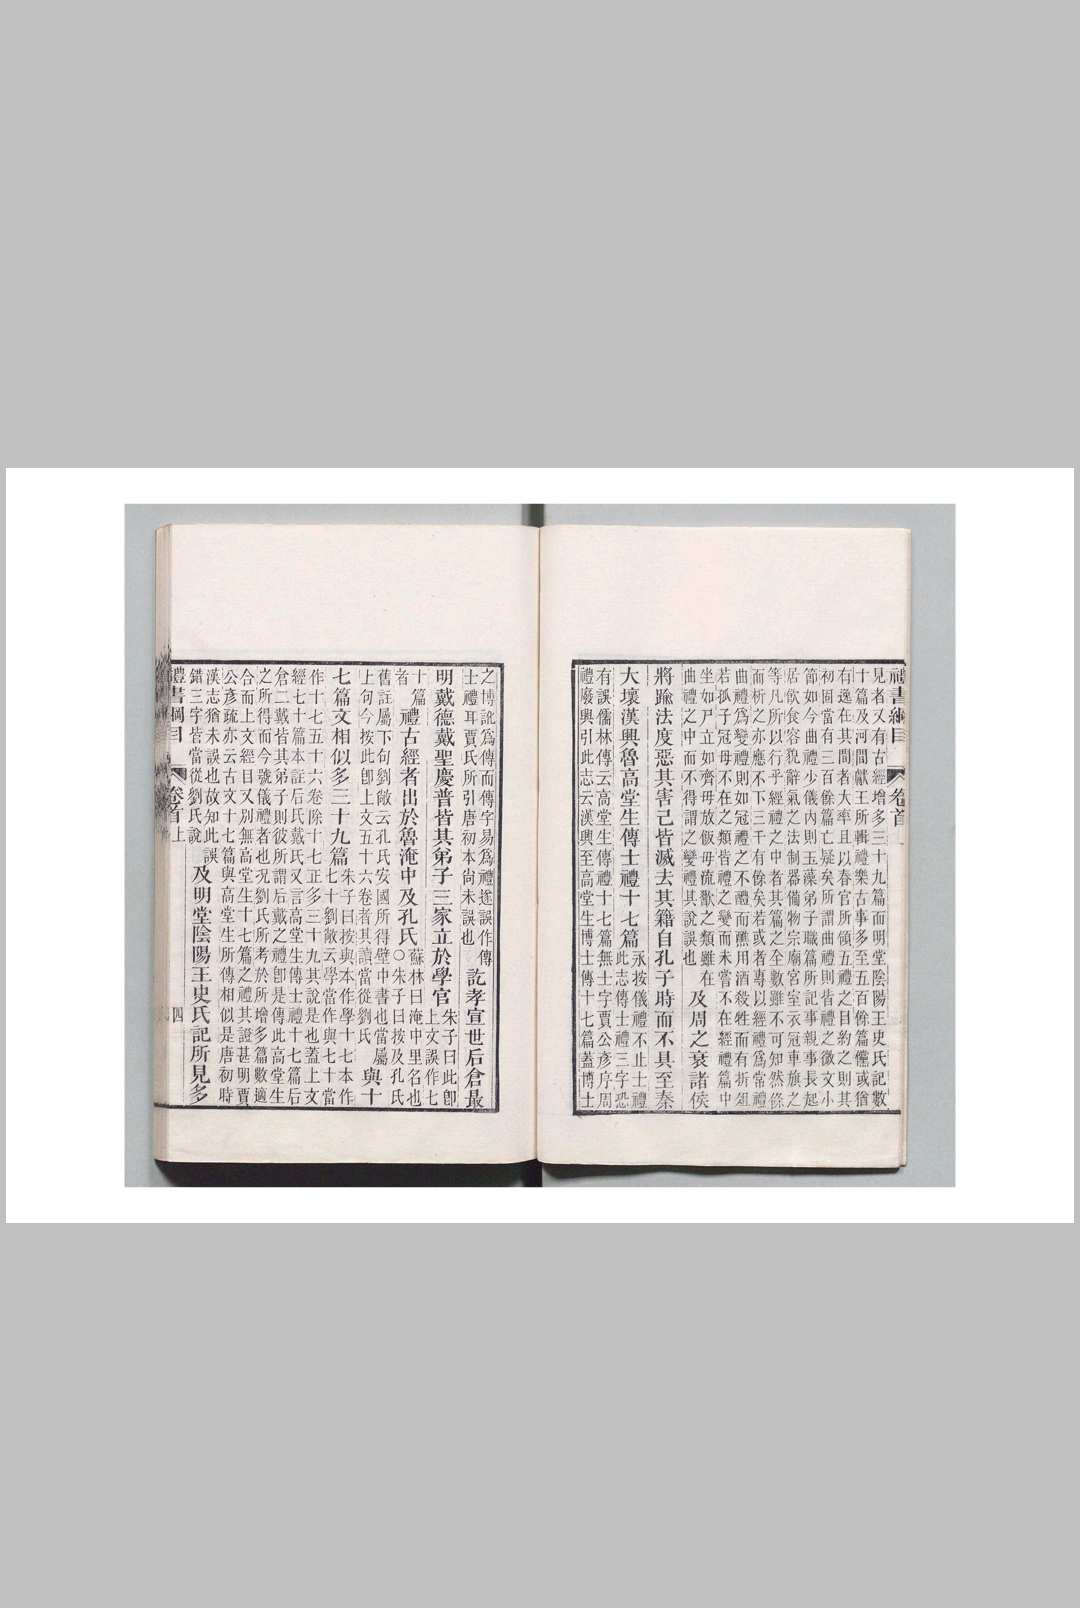 禮書綱目 卷首
見者又有古經增多三十九篇而明堂陰陽王史氏記數
十篇及河間獻王所輯禮樂古事多至五百餘篇儻或猶
有逸在其間者大率且以春官所領五禮之目約之則其
初固當有三百餘篇亡疑矣所謂曲禮則皆禮之微文小
節如今曲禮少儀內則玉藻弟子職篇所記事親事長起
居飲食容貌辭氣之法制器備物宗廟宮室衣冠車旗之
等凡所以行乎經禮之中者其篇之全數雖不可知然條
而析之亦應不下三千有餘矣若或者專以經禮爲常禮
曲禮爲變禮則如冠禮之不醴而醮用酒殺牲而有折俎
若孤子冠母不在之類皆禮之變而未嘗不在經禮篇中
坐如尸立如齊毋放飯毋流歠之類雖在
曲禮之中而不得謂之變禮其說誤也
及周之衰諸侯
將踰法度惡其害己皆滅去其籍自孔子時而不具至秦
大壞漢興魯高堂生傳士禮十七篇
永按儀禮不止士禮
此志傳士禮三字恐
有誤儒林傳云高堂生傳禮十七篇無士字賈公彥序周
禮廢興引此志云漢興至高堂生博士傳十七篇蓋博士
之博訛爲傳而傳字易爲禮遂誤作傳
士禮耳賈氏所引唐初本尚未誤也
訖孝宣世后倉最
明戴德戴聖慶普皆其弟子三家立於學官
朱子曰此卽
上文誤作七
十篇
者
禮古經者出於魯淹中及孔氏
蘇林曰淹中里名也
○朱子曰按及孔氏
舊註屬下句劉敞云孔氏安國所得壁中書也當屬
上句今按此卽上文五十六卷者其讀當從劉氏
與十
七篇文相似多三十九篇
朱子曰按與本作學十七本作
七十劉敞云學當作與七十當
作十七五十六卷除十七正多三十九其說是也蓋上文
經七十篇本註后氏戴氏又言高堂生傳士禮十七篇后
倉二戴皆其弟子則彼所謂后戴之禮卽是傳此高堂生
之所得而今號儀禮者也況劉氏所考於所增多篇數適
合而上文經目又別無高堂生十七篇之禮其證甚明賈
公彥疏亦云古文十七篇與高堂生所傳相似是唐初時
漢志猶未誤也故知此誤
錯三字皆當從劉氏說
及明堂陰陽王史氏記所見多
禮書綱目 卷首上 四